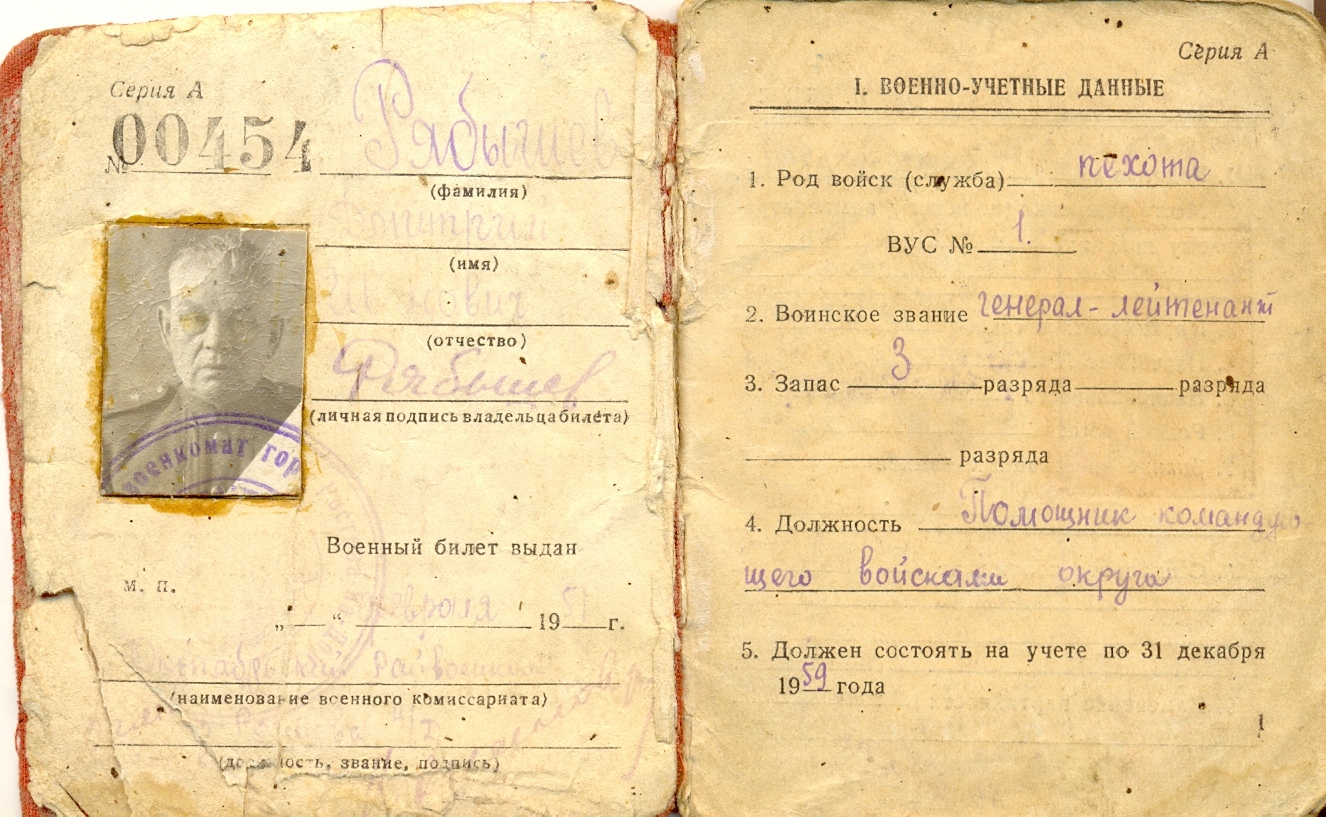 Серия А
№ 00454
Рябышев
(фамилия)
Дмитрий
(имя)
Иванович
(отчество)
Рябышев
(личная подпись владельца билета)
военкомат гор
Рост
Военный билет выдан
м. п.
„ — “ февраля 1951 г.
Октябрьский Райвоенком
(наименование военного комиссариата)
(должность, звание, подпись)
Серия А
I. ВОЕННО-УЧЕТНЫЕ ДАННЫЕ
1. Род войск (служба) пехота
ВУС № 1.
2. Воинское звание генерал-лейтенант
3. Запас 3 разряда разряда
разряда
4. Должность Помощник командую
щего войсками округа
5. Должен состоять на учете по 31 декабря
1959 года
1